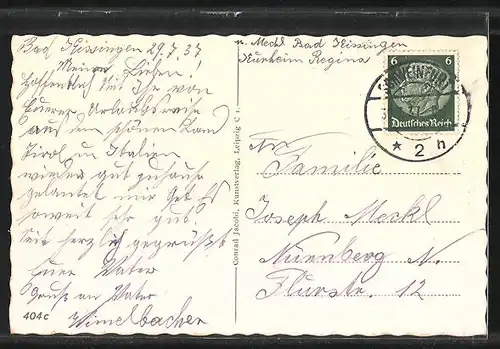 Bad Kissingen 29.7.37
Meine Lieben!
Hoffentlich seit Ihr von
Eurer Urlaubsreise
aus dem schönen Land
Tirol u. Italien
wieder gut zuhause
gelantet mir Get Es
soweit sehr gut.
Seit herzlich gegrüßt
Euer Vater
Gruss an Vater
Wimelbacher
404c
Conrad Jacobi, Kunstverlag, Leipzig C 1
Meckl Bad Kissingen
Kurheim Regina
6 6
Deutsches Reich
SCHWEINFURT
* 2 h
An
Familie
Joseph Meckl
Nürnberg N.
Flurstr. 12